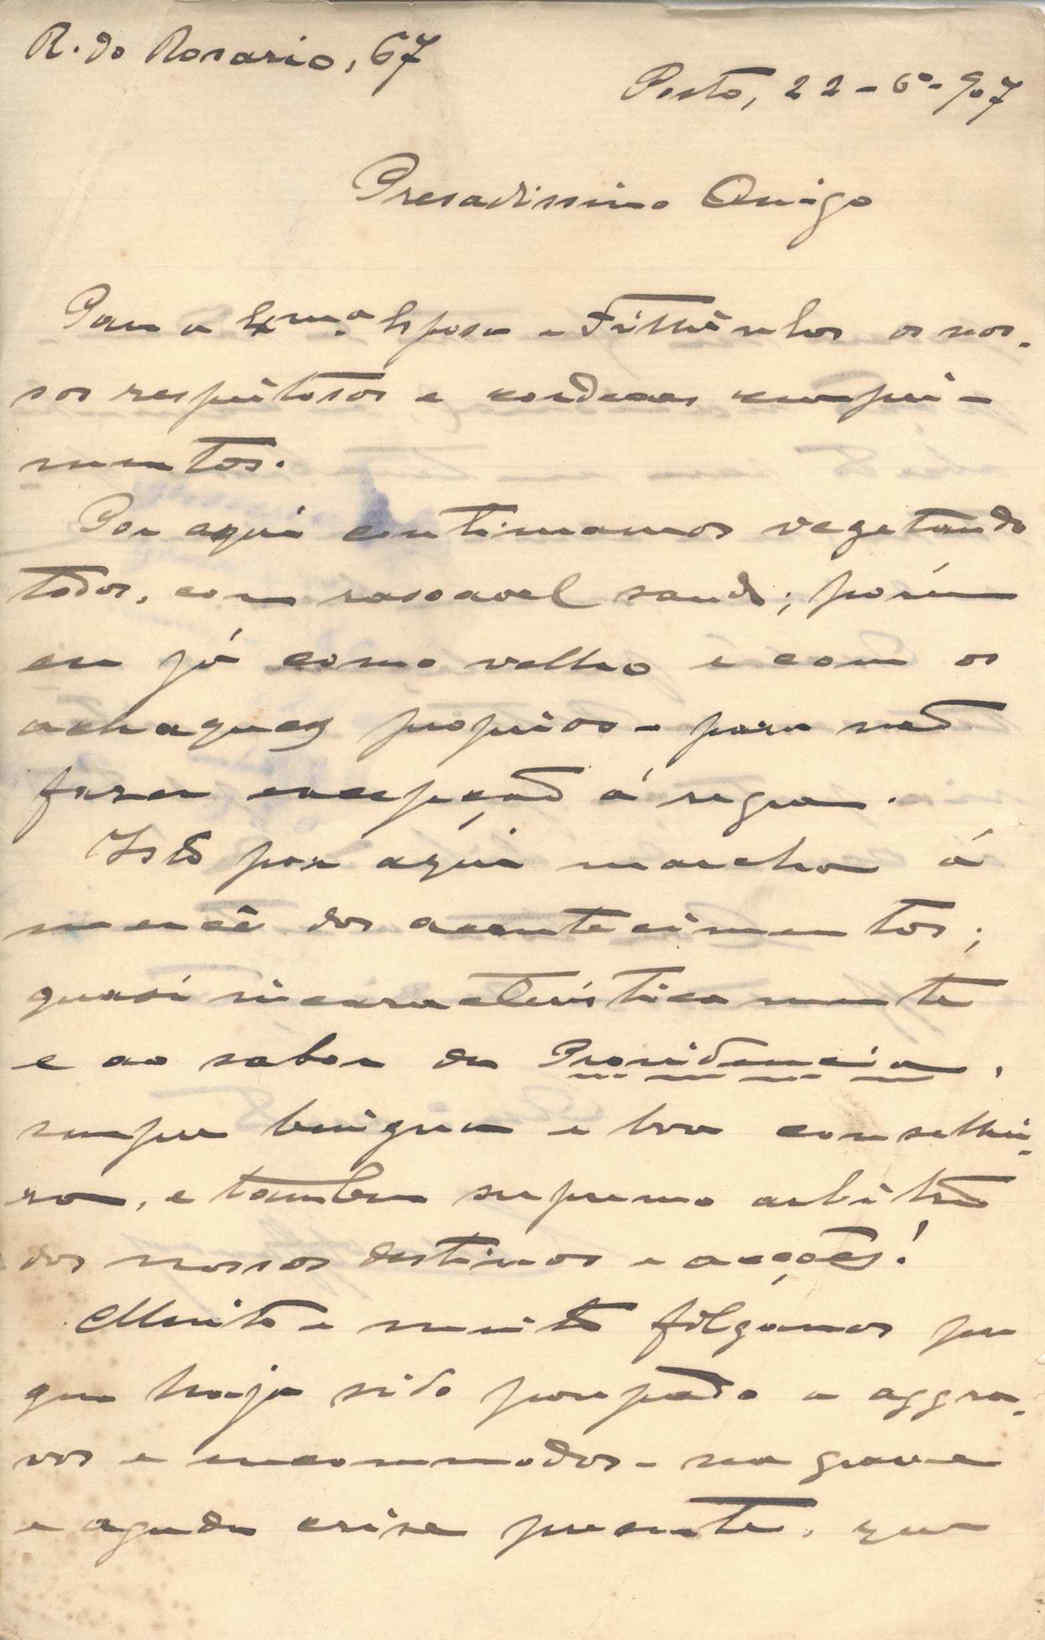 R. do Rosario, 67
Porto, 22-6º-907
Presadissimo Amigo
Para a Exma. Esposa e Filhinhos os nos-
sos respeitosos e cordeaes cumpri-
mentos.
Por aqui continuamos vegetando
todos, com rasoavel saude; porém
eu já como velho e com os
achaques proprios - para não
fazer excepção á regra.
Isto por aqui marcha á
mercê dos acontecimentos;
quasi incaracteristicamente
e ao sabor da Providencia,
sempre benigna e boa conselhei-
ra, e tambem supremo arbitro
dos nossos destinos e acções!
Muito e muito folgâmos por
que haja sido poupado a aggra-
vos e incommodos - na grave
e aguda crise presente, que